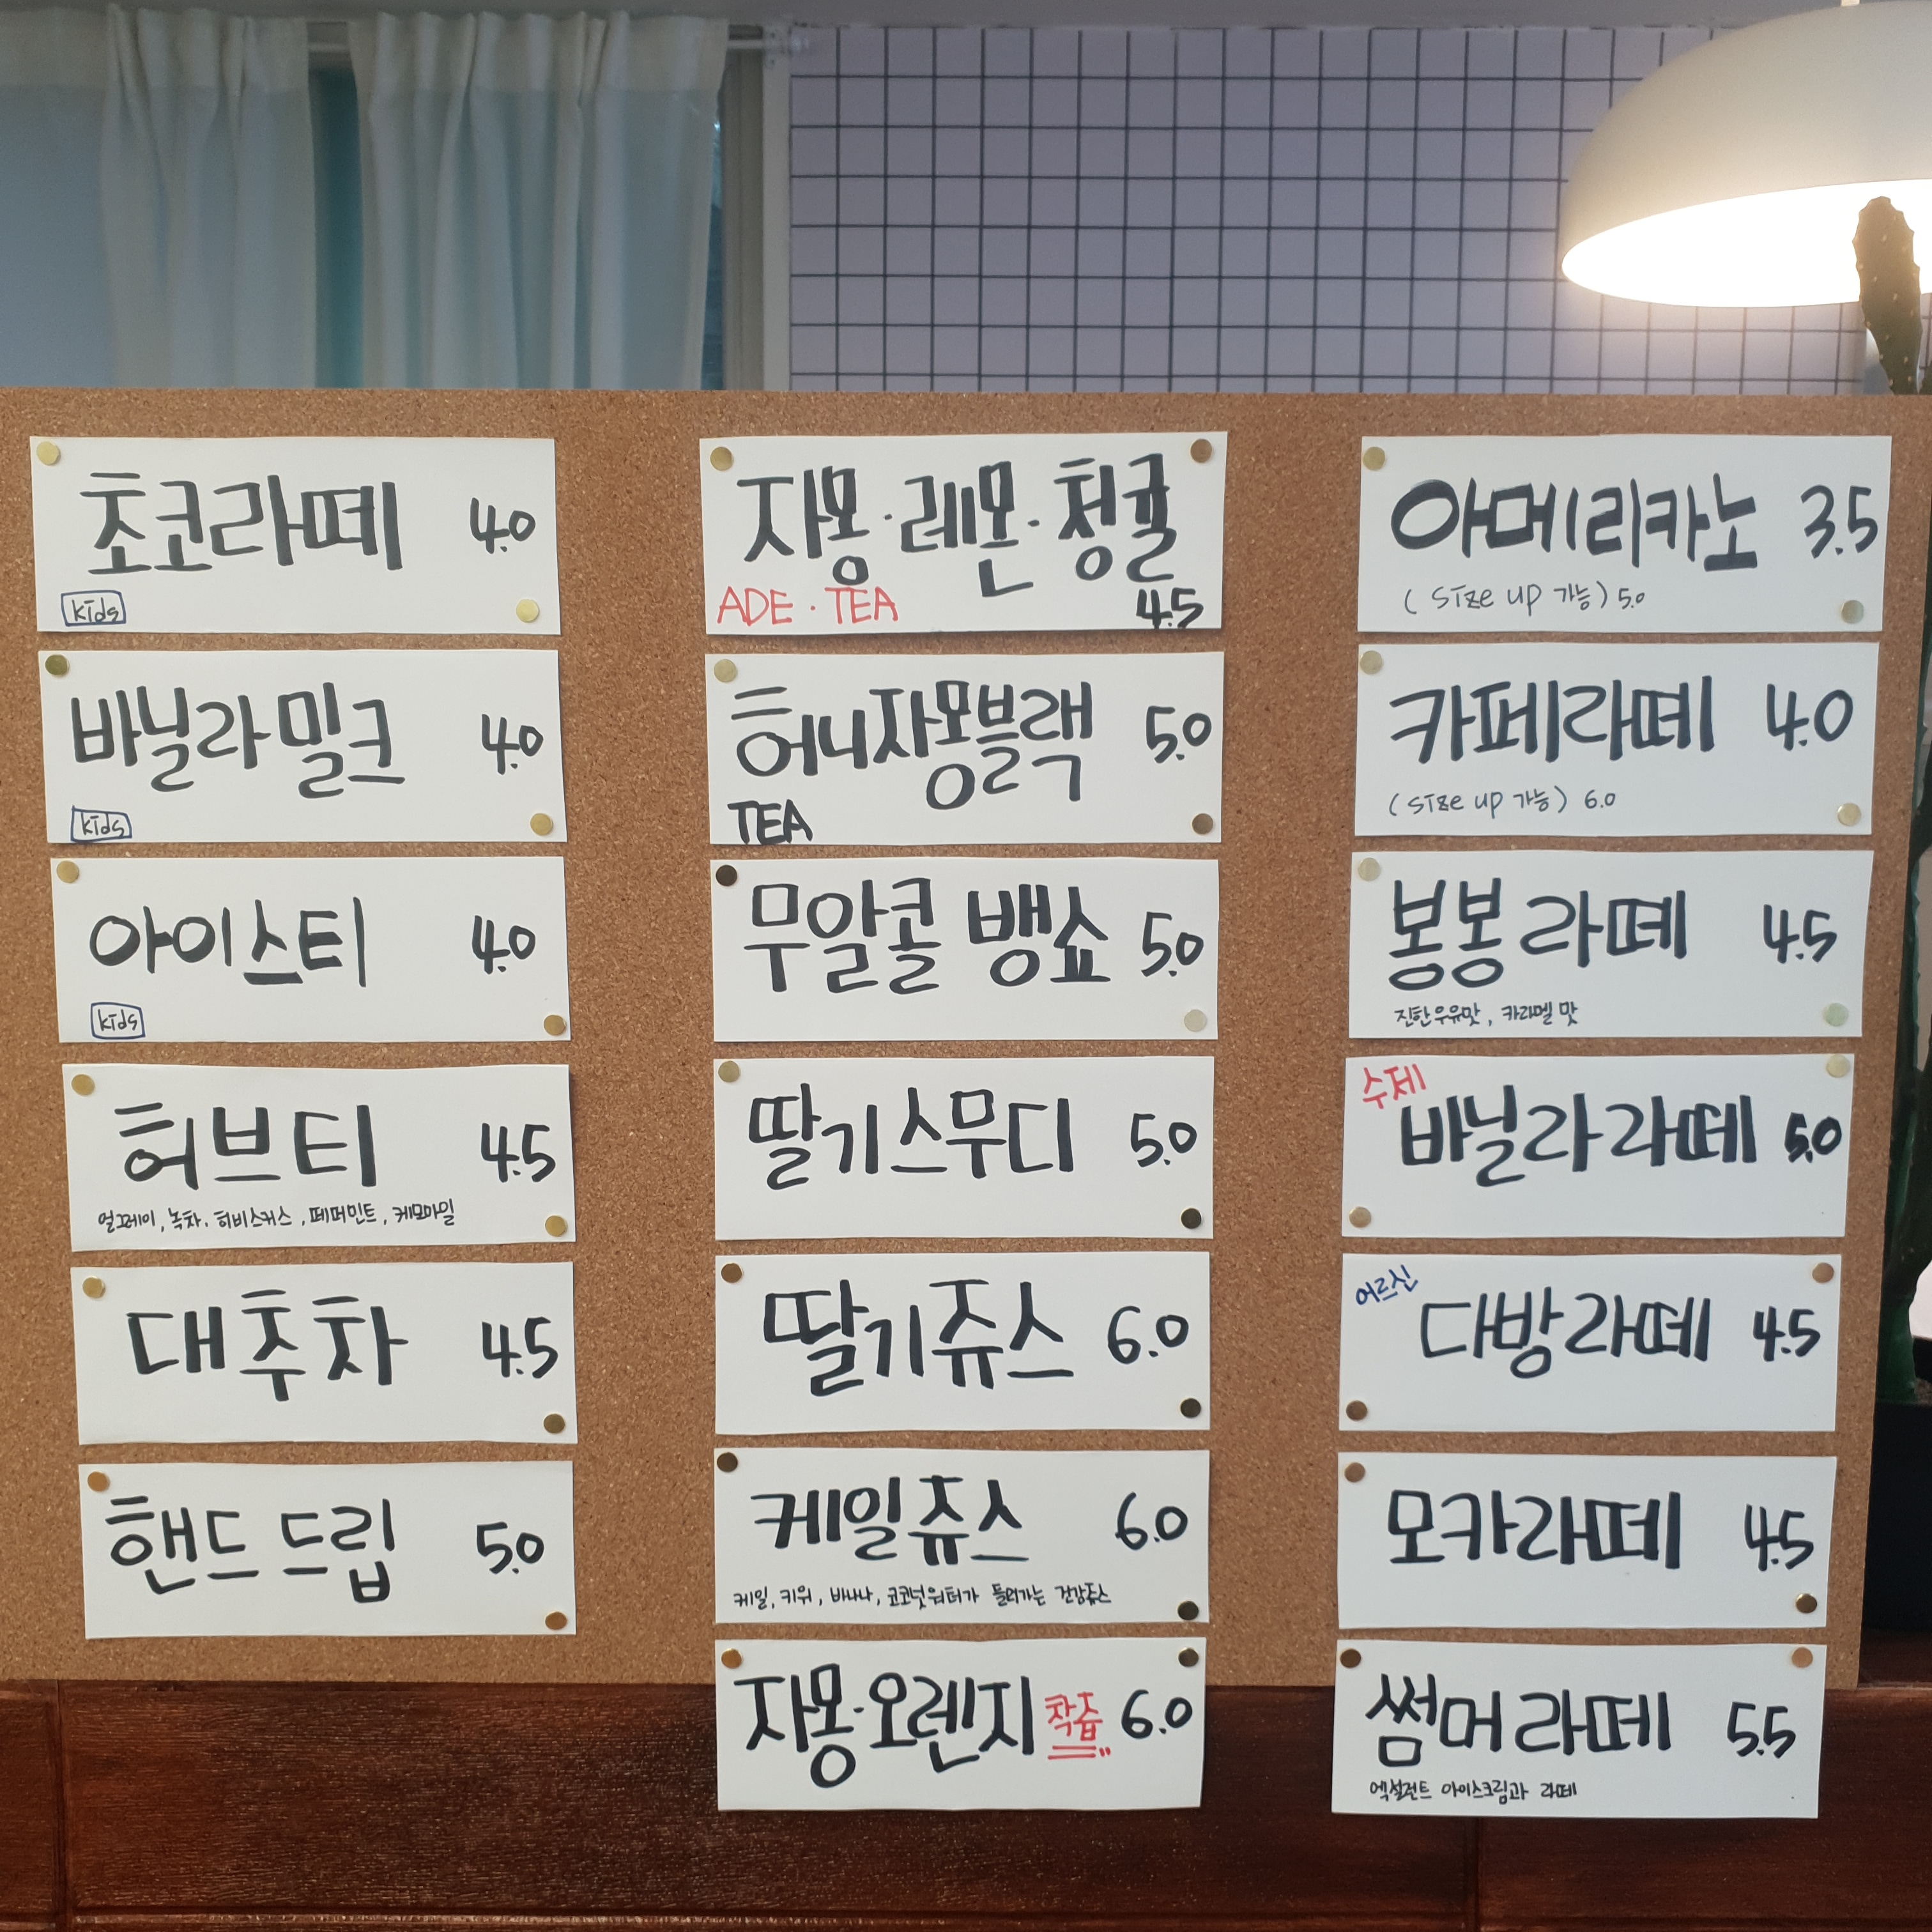 초코라떼 4.0
kids
바닐라 밀크 4.0
kids
아이스티 4.0
kids
허브티 4.5
얼그레이, 녹차, 히비스커스, 페퍼민트, 케모마일
대추차 4.5
핸드드립 5.0
자몽·레몬·청귤
ADE·TEA 4.5
허니자몽블랙 5.0
TEA
무알콜 뱅쇼 5.0
딸기스무디 5.0
딸기쥬스 6.0
케일쥬스 6.0
케일, 키위, 바나나, 코코넛워터가 들어가는 건강쥬스
자몽·오렌지 착즙 6.0
아메리카노 3.5
(size up 가능) 5.0
카페라떼 4.0
(size up 가능) 6.0
봉봉라떼 4.5
진한우유맛, 카라멜 맛
수제
바닐라라떼 5.0
어르신
다방라떼 4.5
모카라떼 4.5
썸머라떼 5.5
엑설런트 아이스크림과 라떼